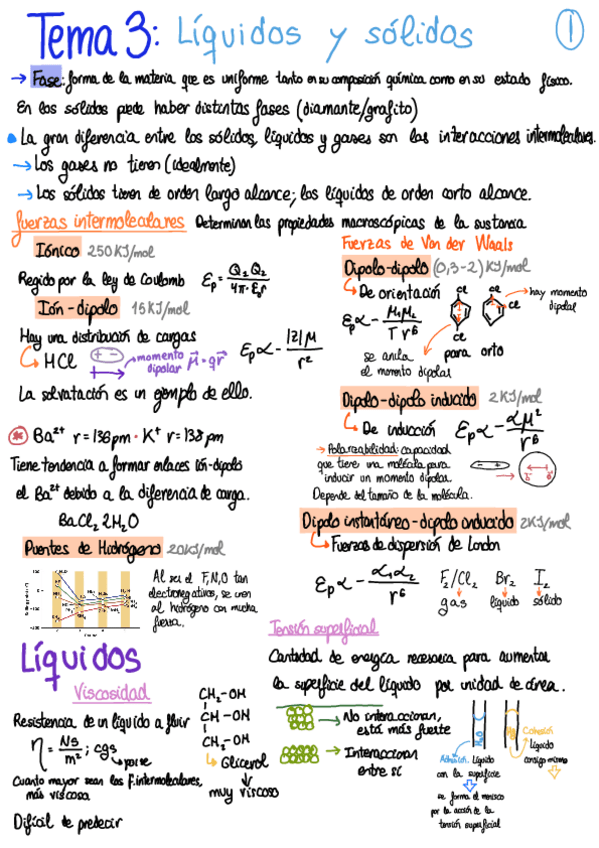 Tema 3: Líquidos y sólidos
1
→ Fase: forma de la materia que es uniforme tanto en su composición química como en su estado físico.
En los sólidos puede haber distintas fases (diamante/grafito)
• La gran diferencia entre los sólidos, líquidos y gases son las interacciones intermoleculares.
→ Los gases no tienen (idealmente)
→ Los sólidos tienen de orden largo alcance; los líquidos de orden corto alcance.
fuerzas intermoleculares Determinan las propiedades macroscópicas de la sustancia
Iónico 250 KJ/mol
Regido por la ley de Coulomb Ep = Q₁Q₂ / 4π·ε₀r
Ión-dipolo 15 KJ/mol
Hay una distribución de cargas
HCl + - momento dipolar μ = q·r
Ep ∝ - |z|μ / r²
La solvatación es un ejemplo de ello.
* Ba²⁺ r = 136 pm · K⁺ r = 138 pm
Tiene tendencia a formar enlaces ión-dipolo
el Ba²⁺ debido a la diferencia de carga.
BaCl₂ 2H₂O
Puentes de Hidrógeno 20 KJ/mol
Al ser el F, N, O tan
electronegativos, se unen
al hidrógeno con mucha
fuerza.
Fuerzas de Van der Waals
Dipolo-dipolo (0,3-2) KJ/mol
De orientación
Ep ∝ - μ₁μ₂ / T r⁶
cl
cl
cl
cl
hay momento
dipolar
para orto
se anula
el momento dipolar
Dipolo-dipolo inducido 2 KJ/mol
De inducción Ep ∝ - αμ² / r⁶
→ Polarizabilidad: capacidad
que tiene una molécula para
inducir un momento dipolar.
Depende del tamaño de la molécula.
- +
δ⁻ δ⁺
Dipolo instantáneo-dipolo inducido 2 KJ/mol
Fuerzas de dispersión de London
Ep ∝ - α₁α₂ / r⁶
F₂/Cl₂ Br₂ I₂
gas líquido sólido
Líquidos
Viscosidad
Resistencia de un líquido a fluir
η = Ns / m² ; cgs
poise
Cuanto mayor sean las F. intermoleculares,
más viscosa.
Difícil de predecir
CH₂-OH
CH-OH
CH₂-OH
Glicerol
muy viscoso
Tensión superficial
Cantidad de energía necesaria para aumentar
la superficie del líquido por unidad de área.
→ No interaccionan,
está más fuerte
→ Interaccionan
entre sí
H₂O
Hg
Adhesión. Líquido
con la superficie
se forma el menisco
por la acción de la
tensión superficial
Cohesión
Líquido
consigo mismo